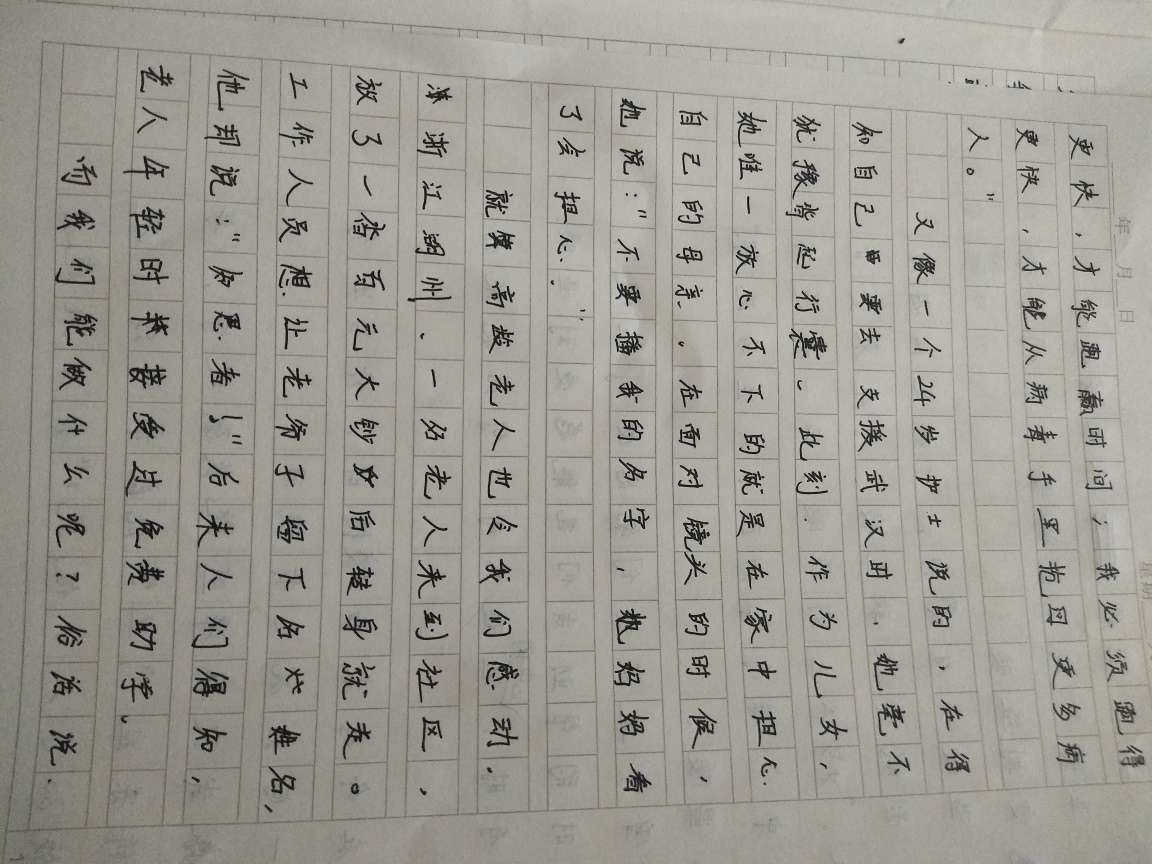 年 月 日
更快，才能跑赢时间；我必须跑得
更快，才能从病毒手里抢回更多病
人。”
又像一个24岁护士说的，在得
知自己要去支援武汉时，她毫不
犹豫背起行囊。此刻，作为儿女，
她唯一放心不下的就是在家中担心
自己的母亲。在面对镜头的时候，
她说：“不要播我的名字，妈妈看
了会担心.”
就算高龄老人也令我们感动，
浙江湖州、一名老人来到社区，
放了一沓百元大钞后转身就走。
工作人员想让老爷子留下姓名，
他却说：“愚者！”后来人们得知，
老人年轻时接受过免费助学。
而我们能做什么呢？俗话说.